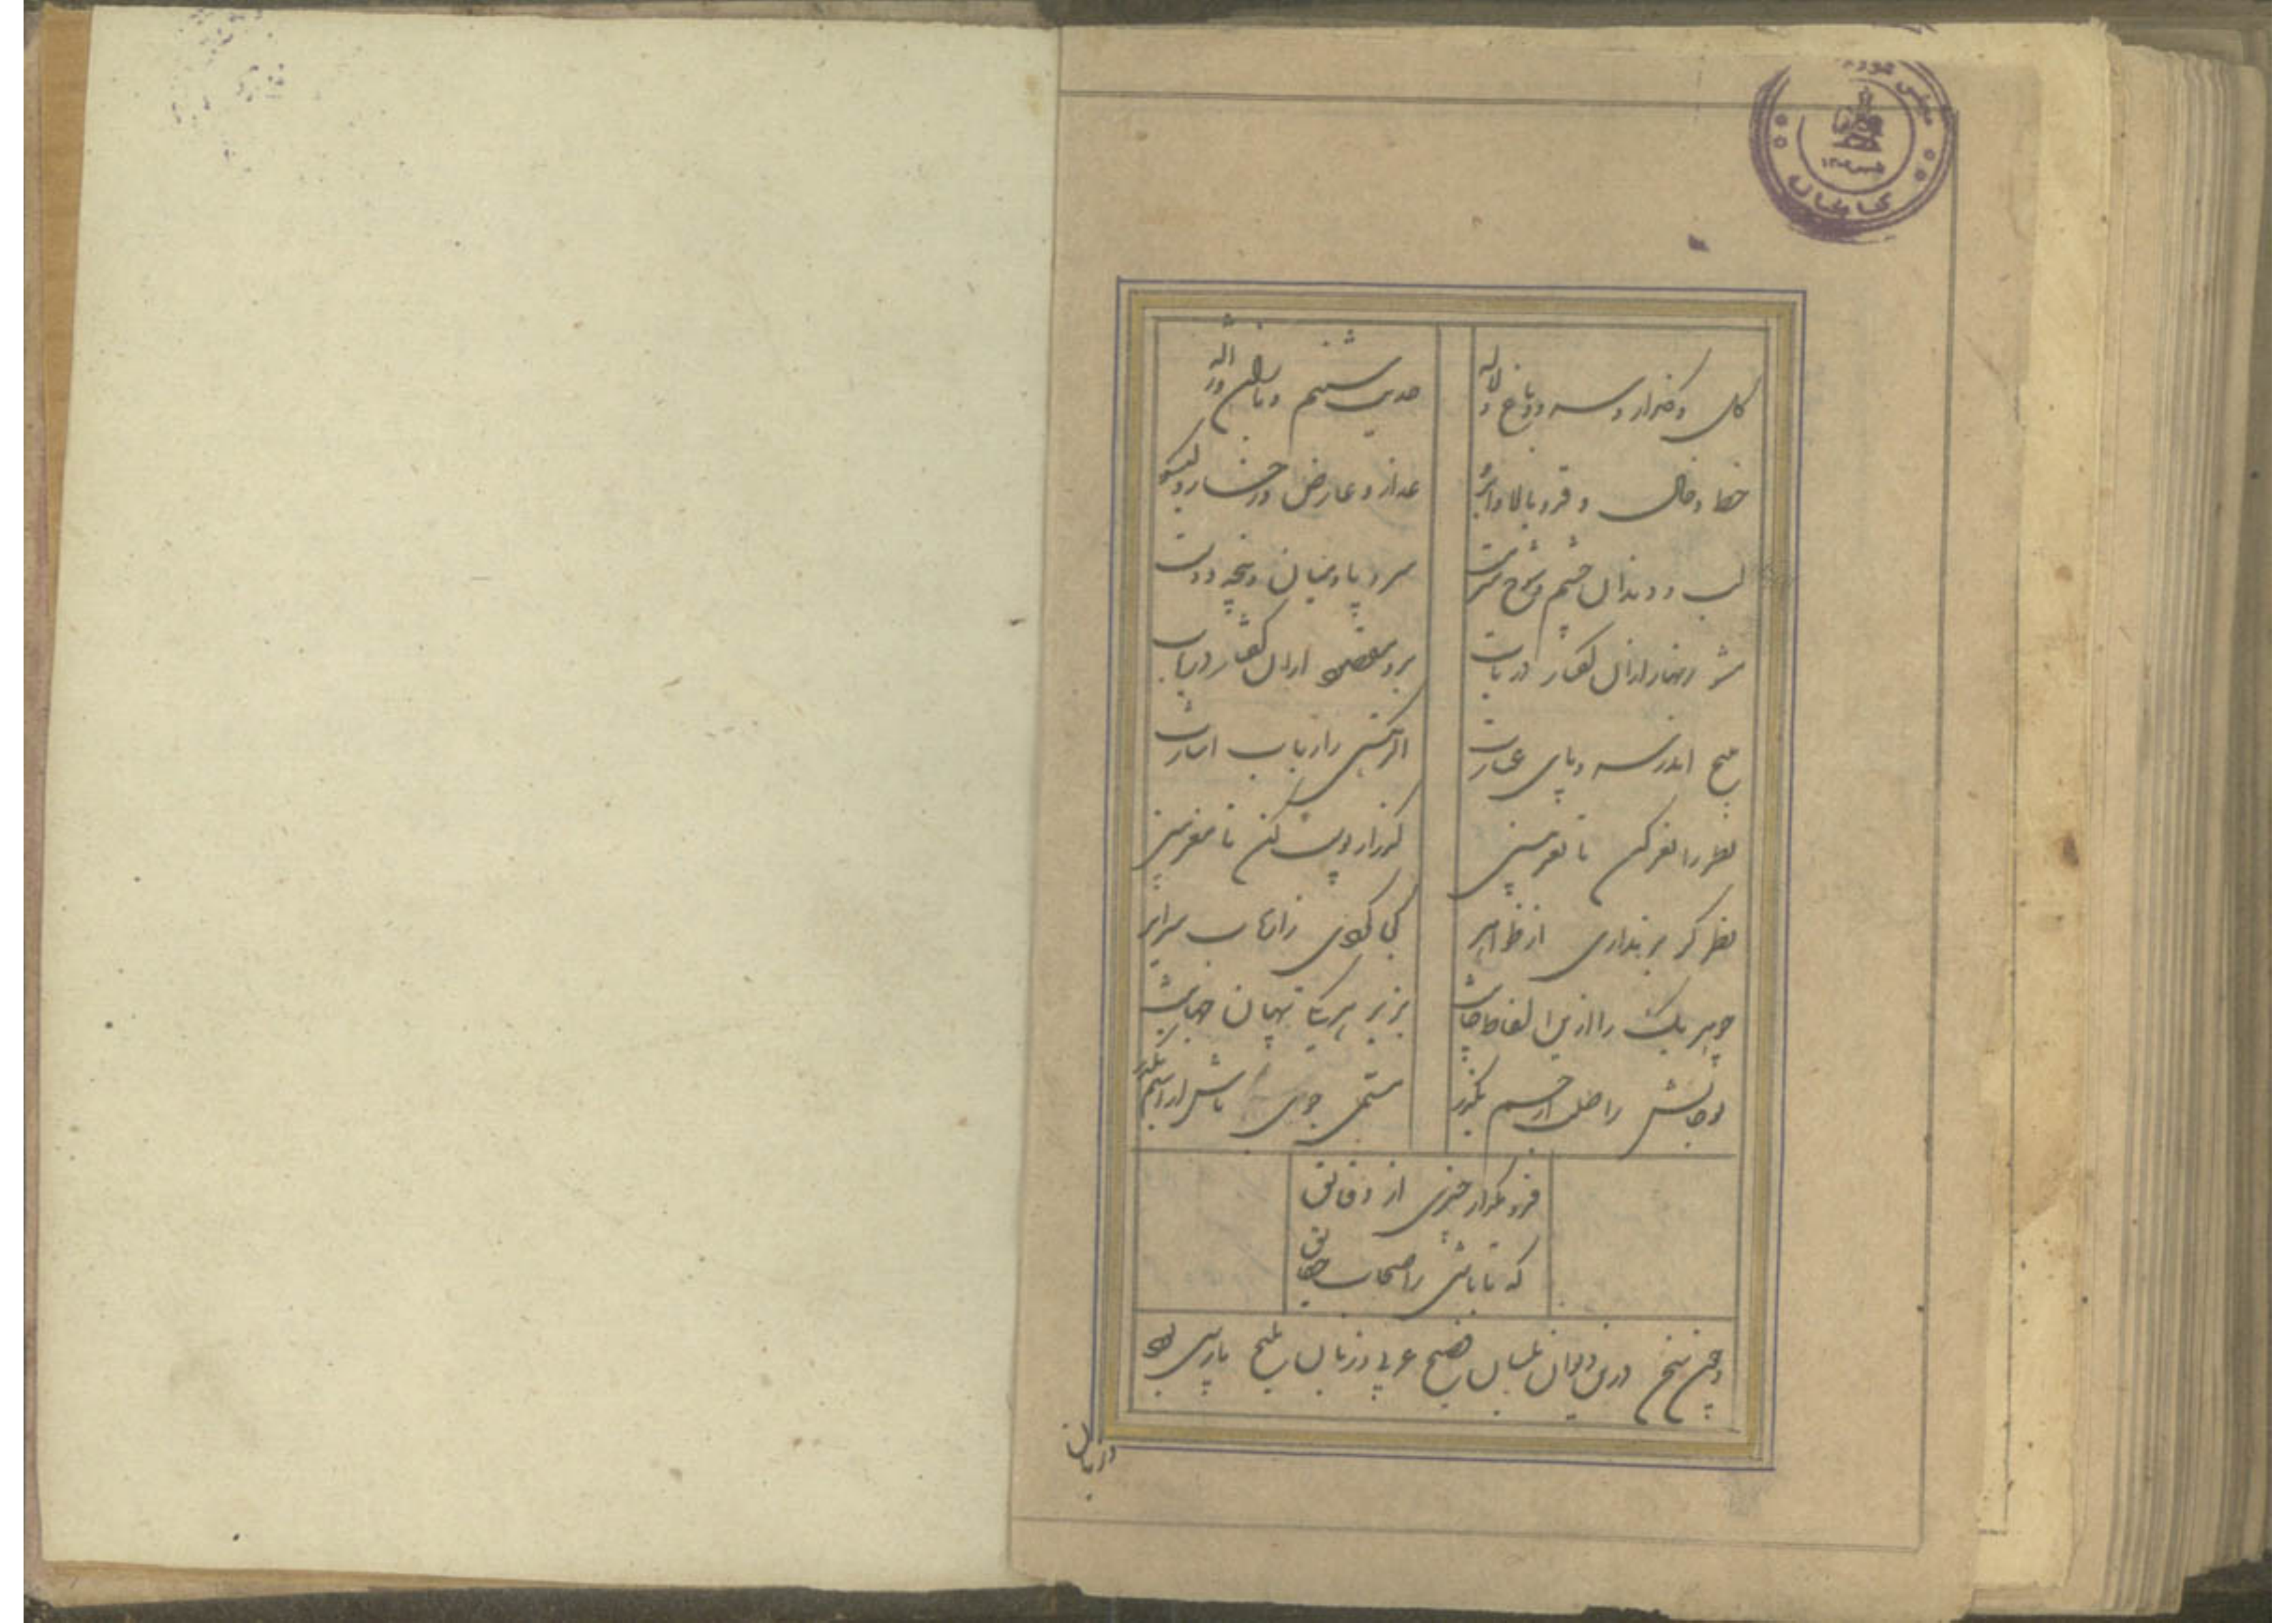 گل و گلزار و سرو و باغ و لاله
حدیث شبنم و باران و ژاله
خط و خال و قد و بالا و ابرو
عذار و عارض و رخسار و گیسو
لب و دندان چشم شوخ سرمست
سر و پا و میان و پنجه و دست
مشو زنهار ازان گفتار در تاب
برو مقصود ازان گفتار دریاب
مپیچ اندر سر و پای عبارت
اگر هستی ز ارباب اشارت
نظر را نغز کن تا نغز بینی
گذر از پوست کن تا مغز بینی
نظر گر برنداری از ظواهر
کجا گردی ز ارباب سرایر
چو هر یک را ازین الفاظ جانیست
بزیر هر یکی پنهان جهانیست
تو جانش را طلب از جسم بگذر
مسمی جوی باش از اسم بگذر
فرو مگذار چیزی از دقایق
که تا باشی ز اصحاب حقایق
و چون سخن درین دیوان بلسان فصیح عربی و زبان ملیح پارسی بود
مجلس
کتابخانه